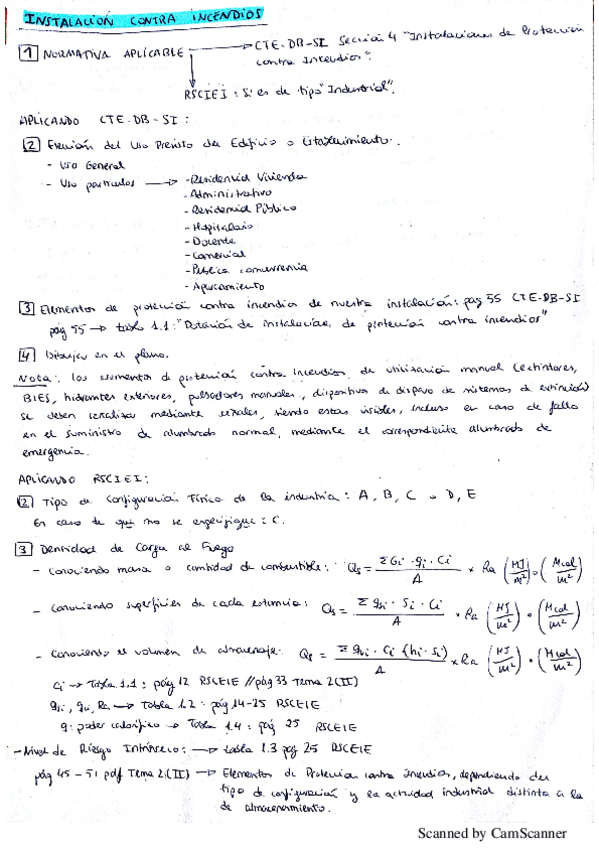 INSTALACIÓN CONTRA INCENDIOS
1 NORMATIVA APLICABLE → CTE-DB-SI Sección 4 "Instalaciones de Protección
contra Incendios".
RSCIEI: Si es de tipo "Industrial".
APLICANDO CTE-DB-SI:
2 Elección del Uso Previsto del Edificio o Establecimiento.
- Uso General
- Uso particular → - Residencial Vivienda
- Administrativo
- Residencial Público
- Hospitalario
- Docente
- Comercial
- Pública concurrencia
- Aparcamiento
3 Elementos de protección contra incendios de nuestra instalación: pág 55 CTE-DB-SI
pág 55 → tabla 1.1: "Dotación de instalaciones de protección contra incendios"
4 Dibujar en el plano.
Nota: los elementos de protección contra incendios, de utilización manual (extintores,
BIES, hidrantes exteriores, pulsadores manuales, dispositivos de disparo de sistemas de extinción)
se deben señalizar mediante señales, siendo estas visibles, incluso en caso de fallo
en el suministro de alumbrado normal, mediante el correspondiente alumbrado de
emergencia.
APLICANDO RSCIEI:
2 Tipo de Configuración Física de la industria: A, B, C o D, E
En caso de que no se especifique: C.
3 Densidad de Carga al Fuego
- Conociendo masa o cantidad de combustible: Qs = Σ Gi · qi · Ci / A × Ra (MJ/m²) o (Mcal/m²)
- Conociendo superficies de cada estancia: Qs = Σ qsi · Si · Ci / A × Ra (MJ/m²) o (Mcal/m²)
- Conociendo el volumen de almacenaje: Qs = Σ qvi · Ci (hi · si) / A × Ra (MJ/m²) o (Mcal/m²)
Ci → Tabla 1.1: pág 12 RSCEIE // pág 33 Tema 2(II)
qsi, qvi, Ra → tabla 1.2: pág 14-25 RSCEIE
q: poder calorífico → Tabla 1.4: pág 25 RSCEIE
- Nivel de Riesgo Intrínseco: → tabla 1.3 pag 25 RSCEIE
pág 45-51 pdf Tema 2.(II) → Elementos de Protección contra Incendios, dependiendo del
tipo de configuración y la actividad industrial distinta a la
de almacenamiento.
Scanned by CamScanner